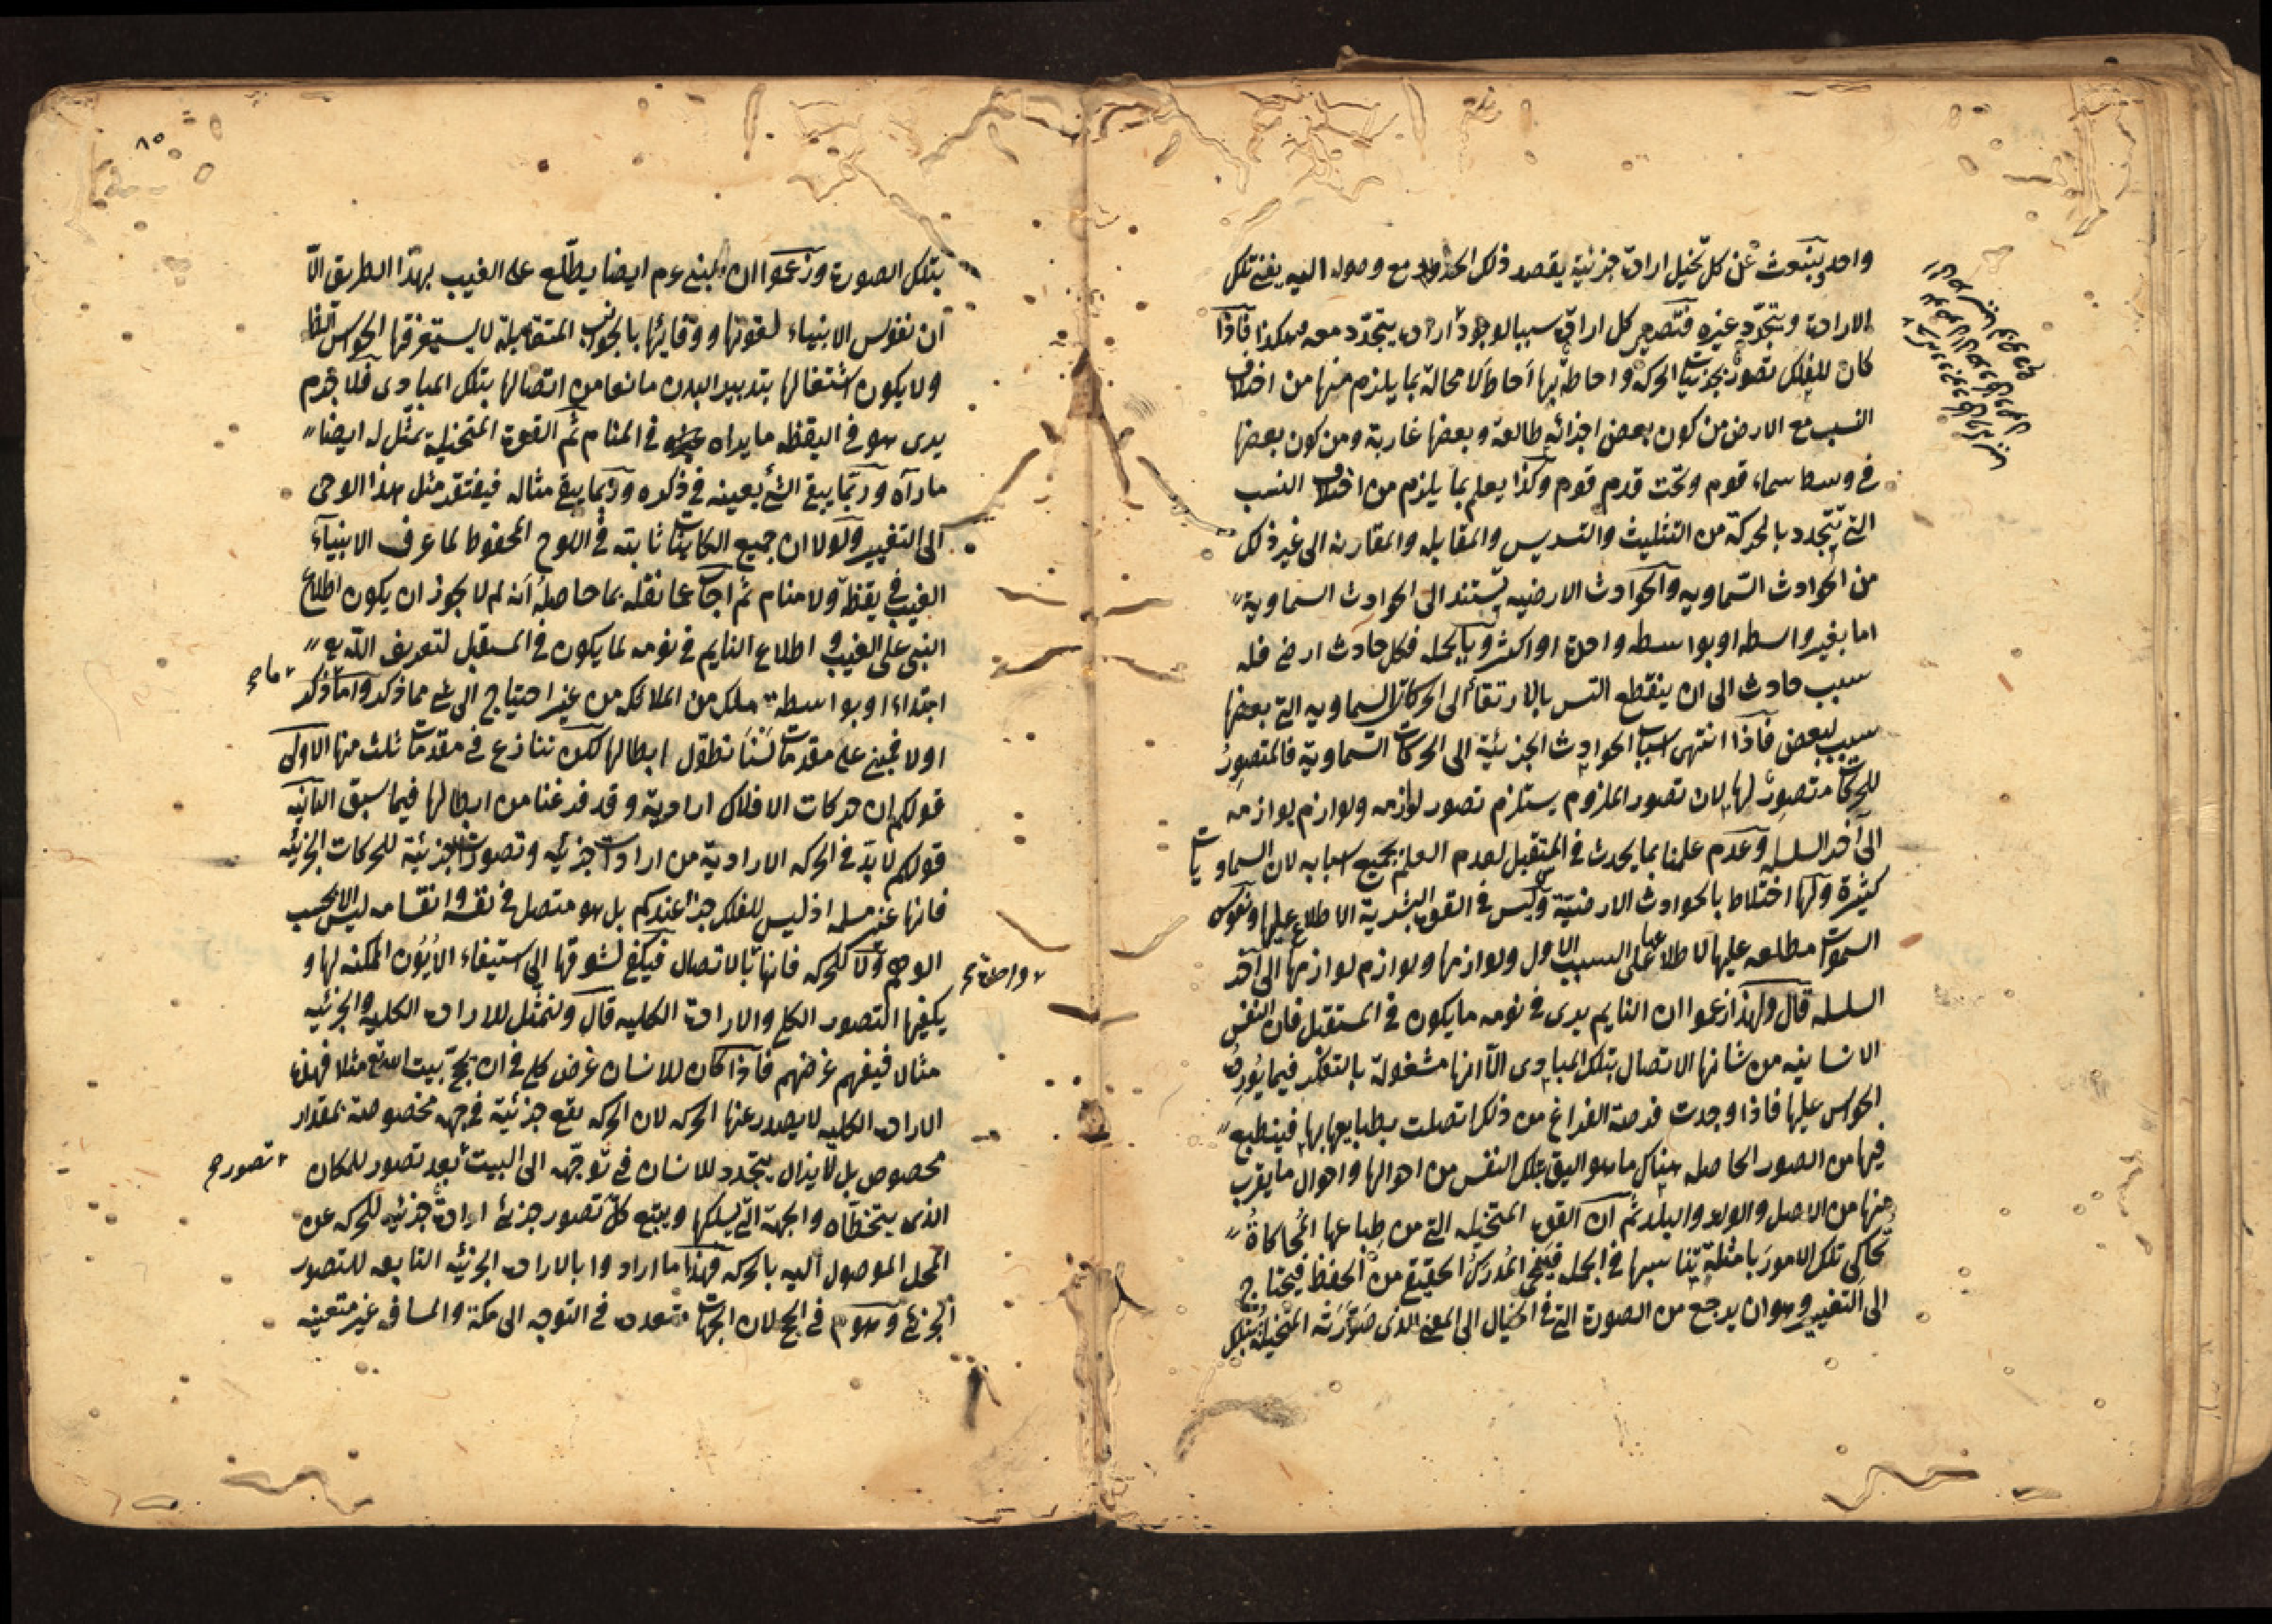 واحد وينبعث عن كل تخيل ارادة جزئية يقصد ذلك الحد و مع وصوله اليه يفنى تلك
الارادة ويتجدد غيره فتصير كل ارادة سببا لوجود ارادة يتجدد معه هكذا فاذا
كان للفلك تصور بجزئيات الحركة واحاطة بها احاط لا محالة بما يلزم منها من اختلاف
النسب مع الارض من كون بعض اجزائه طالعة وبعضها غاربة ومن كون بعضها
فى وسط سماء قوم وتحت قدم قوم وكذا يعلم بما يلزم من اختلاف النسب
التى يتجدد بالحركة من التثليث والتسديس والمقابلة والمقارنة الى غير ذلك
من الحوادث السماويه والحوادث الارضيه يستند الى الحوادث السماوية
اما بغير واسطه او بواسطه واحدة او اكثر وبالجمله فكل حادث ارضى فله
سبب حادث الى ان ينقطع التس بالارتقاء الى الحركات السماويه التى بعضها
سبب لبعض فاذا انتهى اسباب الحوادث الجزئية الى الحركات السماوية فالمتصور
للحركات متصور لها لان تصور الملزوم يستلزم تصور لوازمه ولوازم لوازمه
الى آخر السلسله وعدم علمنا بما يحدث فى المستقبل لعدم العلم بجميع اسبابه لان السماويات
كثيرة ولها اختلاط بالحوادث الارضية وليس فى القوة البشرية الاطلاع عليها ونفوس
السموات مطلعه عليها لاطلاعها على السبب الاول ولوازمها ولوازم لوازمها الى آخر
السلسله قال ولهذا زعموا ان النايم يرى فى نومه ما يكون فى المستقبل فان النفس
الانسانيه من شانها الاتصال بتلك المبادى الا انها مشغولة بالتفكر فيما يورد
الحواس عليها فاذا وجدت فرصة الفراغ من ذلك اتصلت بطبايعها بها فينطبع
فيها من الصور الحاصله هناك ما هو اليق بتلك النفس من احوالها واحوال ما يقرب
منها من الاصل والولد والبلد ثم ان القوة المتخيله التى من طباعها المحاكاة
تحاكى تلك الامور بامثلة تناسبها فى الجمله فيبقى المدرك الحقيقى من الحفظ فيحتاج
الى التعبير وهو ان يرجع من الصورة التى فى الخيال الى المعنى الذى صورته المتخيلة بتلك
٨٥
بتلك الصورة وزعموا ان النبى عم ايضا يطلع على الغيب بهذا الطريق الا
ان نفوس الانبياء لقوتها ووفائها بالجوانب المتقابلة لا يستغرقها الحواس الظا
ولا يكون اشتغالها بتدبير البدن مانعا من اتصالها بتلك المبادى فلا جرم
يرى هو فى اليقظه ما يراه غيره فى المنام ثم القوة المتخيلة يمثل له ايضا
ما رآه وربما يبقى الشئ بعينه فى ذكره وربما يبقى مثاله فيفتقر مثل هذا الوحى
الى التعبير ولولا ان جميع الكاينات ثابته فى اللوح المحفوظ لما عرف الانبياء
الغيب فى يقظة ولا منام ثم اجاب عما نقله بما حاصله انه لم لا يجوز ان يكون اطلاع
النبى على الغيب و اطلاع النايم فى نومه لما يكون فى المستقبل لتعريف الله تع
ابتداء او بواسطة ملك من الملائكه من غير احتياج الى شئ مما ذكر واما ما ذكر
اولا فمبنى على مقدمات لسنا نطول ابطالها لكن ننازع فى مقدمات ثلث منها الاولى
قولكم ان حركات الافلاك ارادية وقد فرغنا من ابطالها فيما سبق الثانيه
قولكم لا بد فى الحركه الارادية من ارادات جزئيه وتصورات جزئية للحركات الجزئيه
فانها غير مسلمه اذ ليس للفلك جزء عندكم بل هو متصل فى نفسه وانقسامه ليس الا بحسب
الوهم ولا للحركه فانها واحدة بالاتصال فيكفى لشوقها الى استيفاء الايون الممكنه لها و
يكفيها التصور الكلى والارادة الكليه قال ولنمثل للارادة الكليه والجزئيه
مثالا فيفهم غرضهم فاذا كان للانسان غرض كلى فى ان يحج بيت الله تع مثلا فهذه
الارادة الكليه لا يصدر عنها الحركه لان الحركه يقع جزئية فى جهه مخصوصة بمقدار
مخصوص بل لا يزال يتجدد للانسان فى توجهه الى البيت تصور بعد تصور للمكان
الذى يتخطاه والجهة التى يسلكها ويتبع كل تصور جزئى ارادة جزئيه للحركه عن
المحل الموصول اليه بالحركه فهذا ما ارادوا بالارادة الجزئيه التابعه للتصور
الجزئى وهو م فى الحج لان الجهات متعددة فى التوجه الى مكة والمسافة غير متعينه